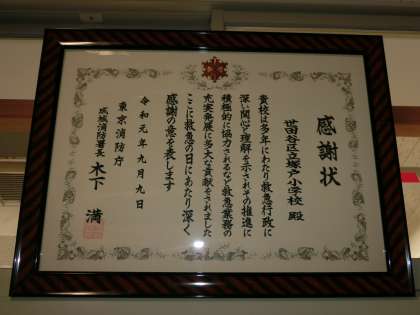 感謝状
世田谷区立塚戸小学校 殿
貴校は多年にわたり救急行政に
深い関心と理解を示されその推進に
積極的に協力されるなど救急業務の
充実発展に多大な貢献をされました
ここに救急の日にあたり深く
感謝の意を表します
令和元年九月九日
東京消防庁
成城消防署長 木下 満